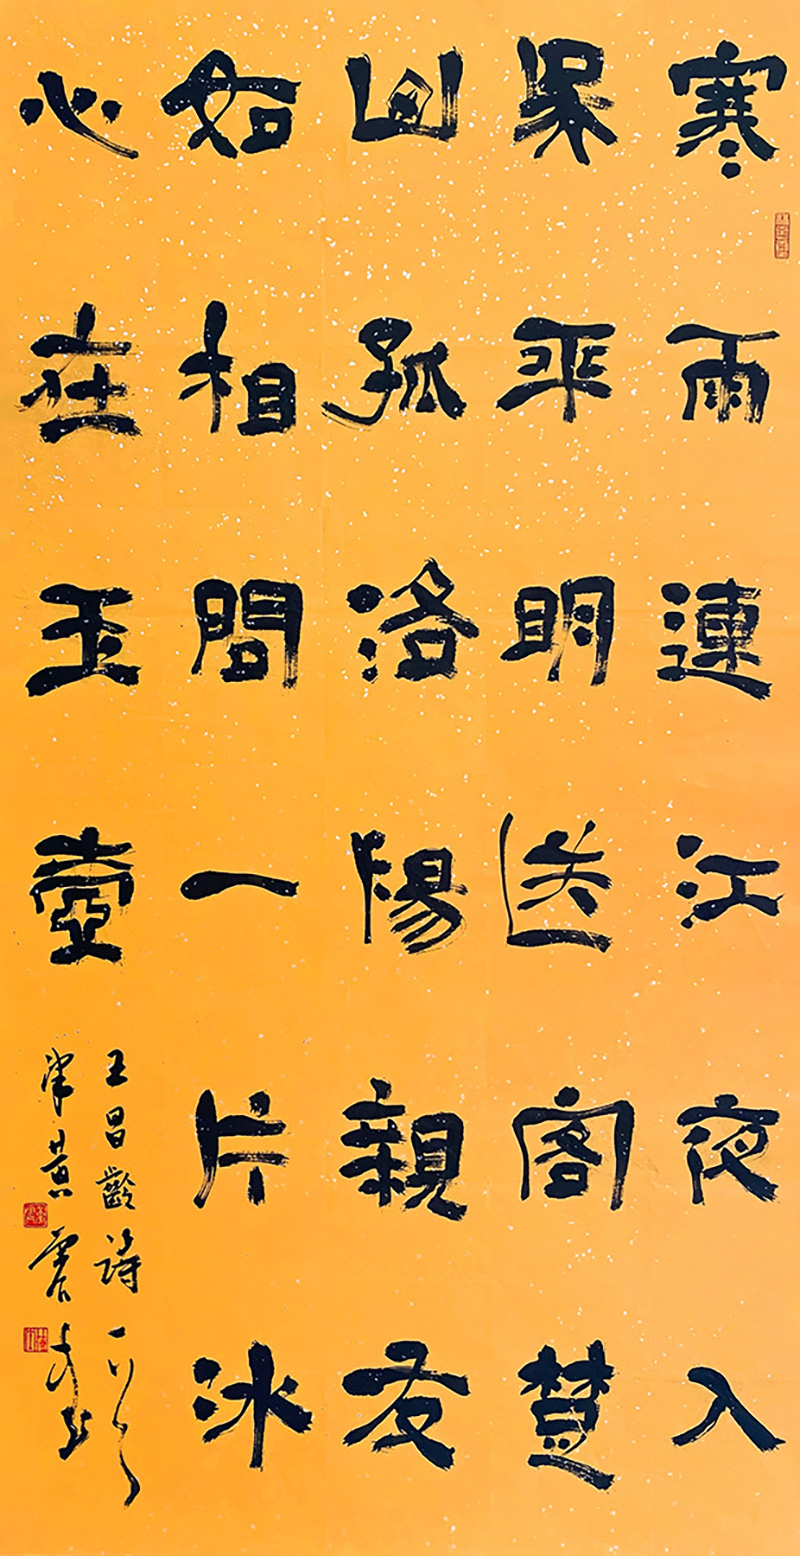 寒雨連江夜入
吳平明送客楚
山孤洛陽親友
如相問一片冰
心在玉壺
王昌齡詩一
黃